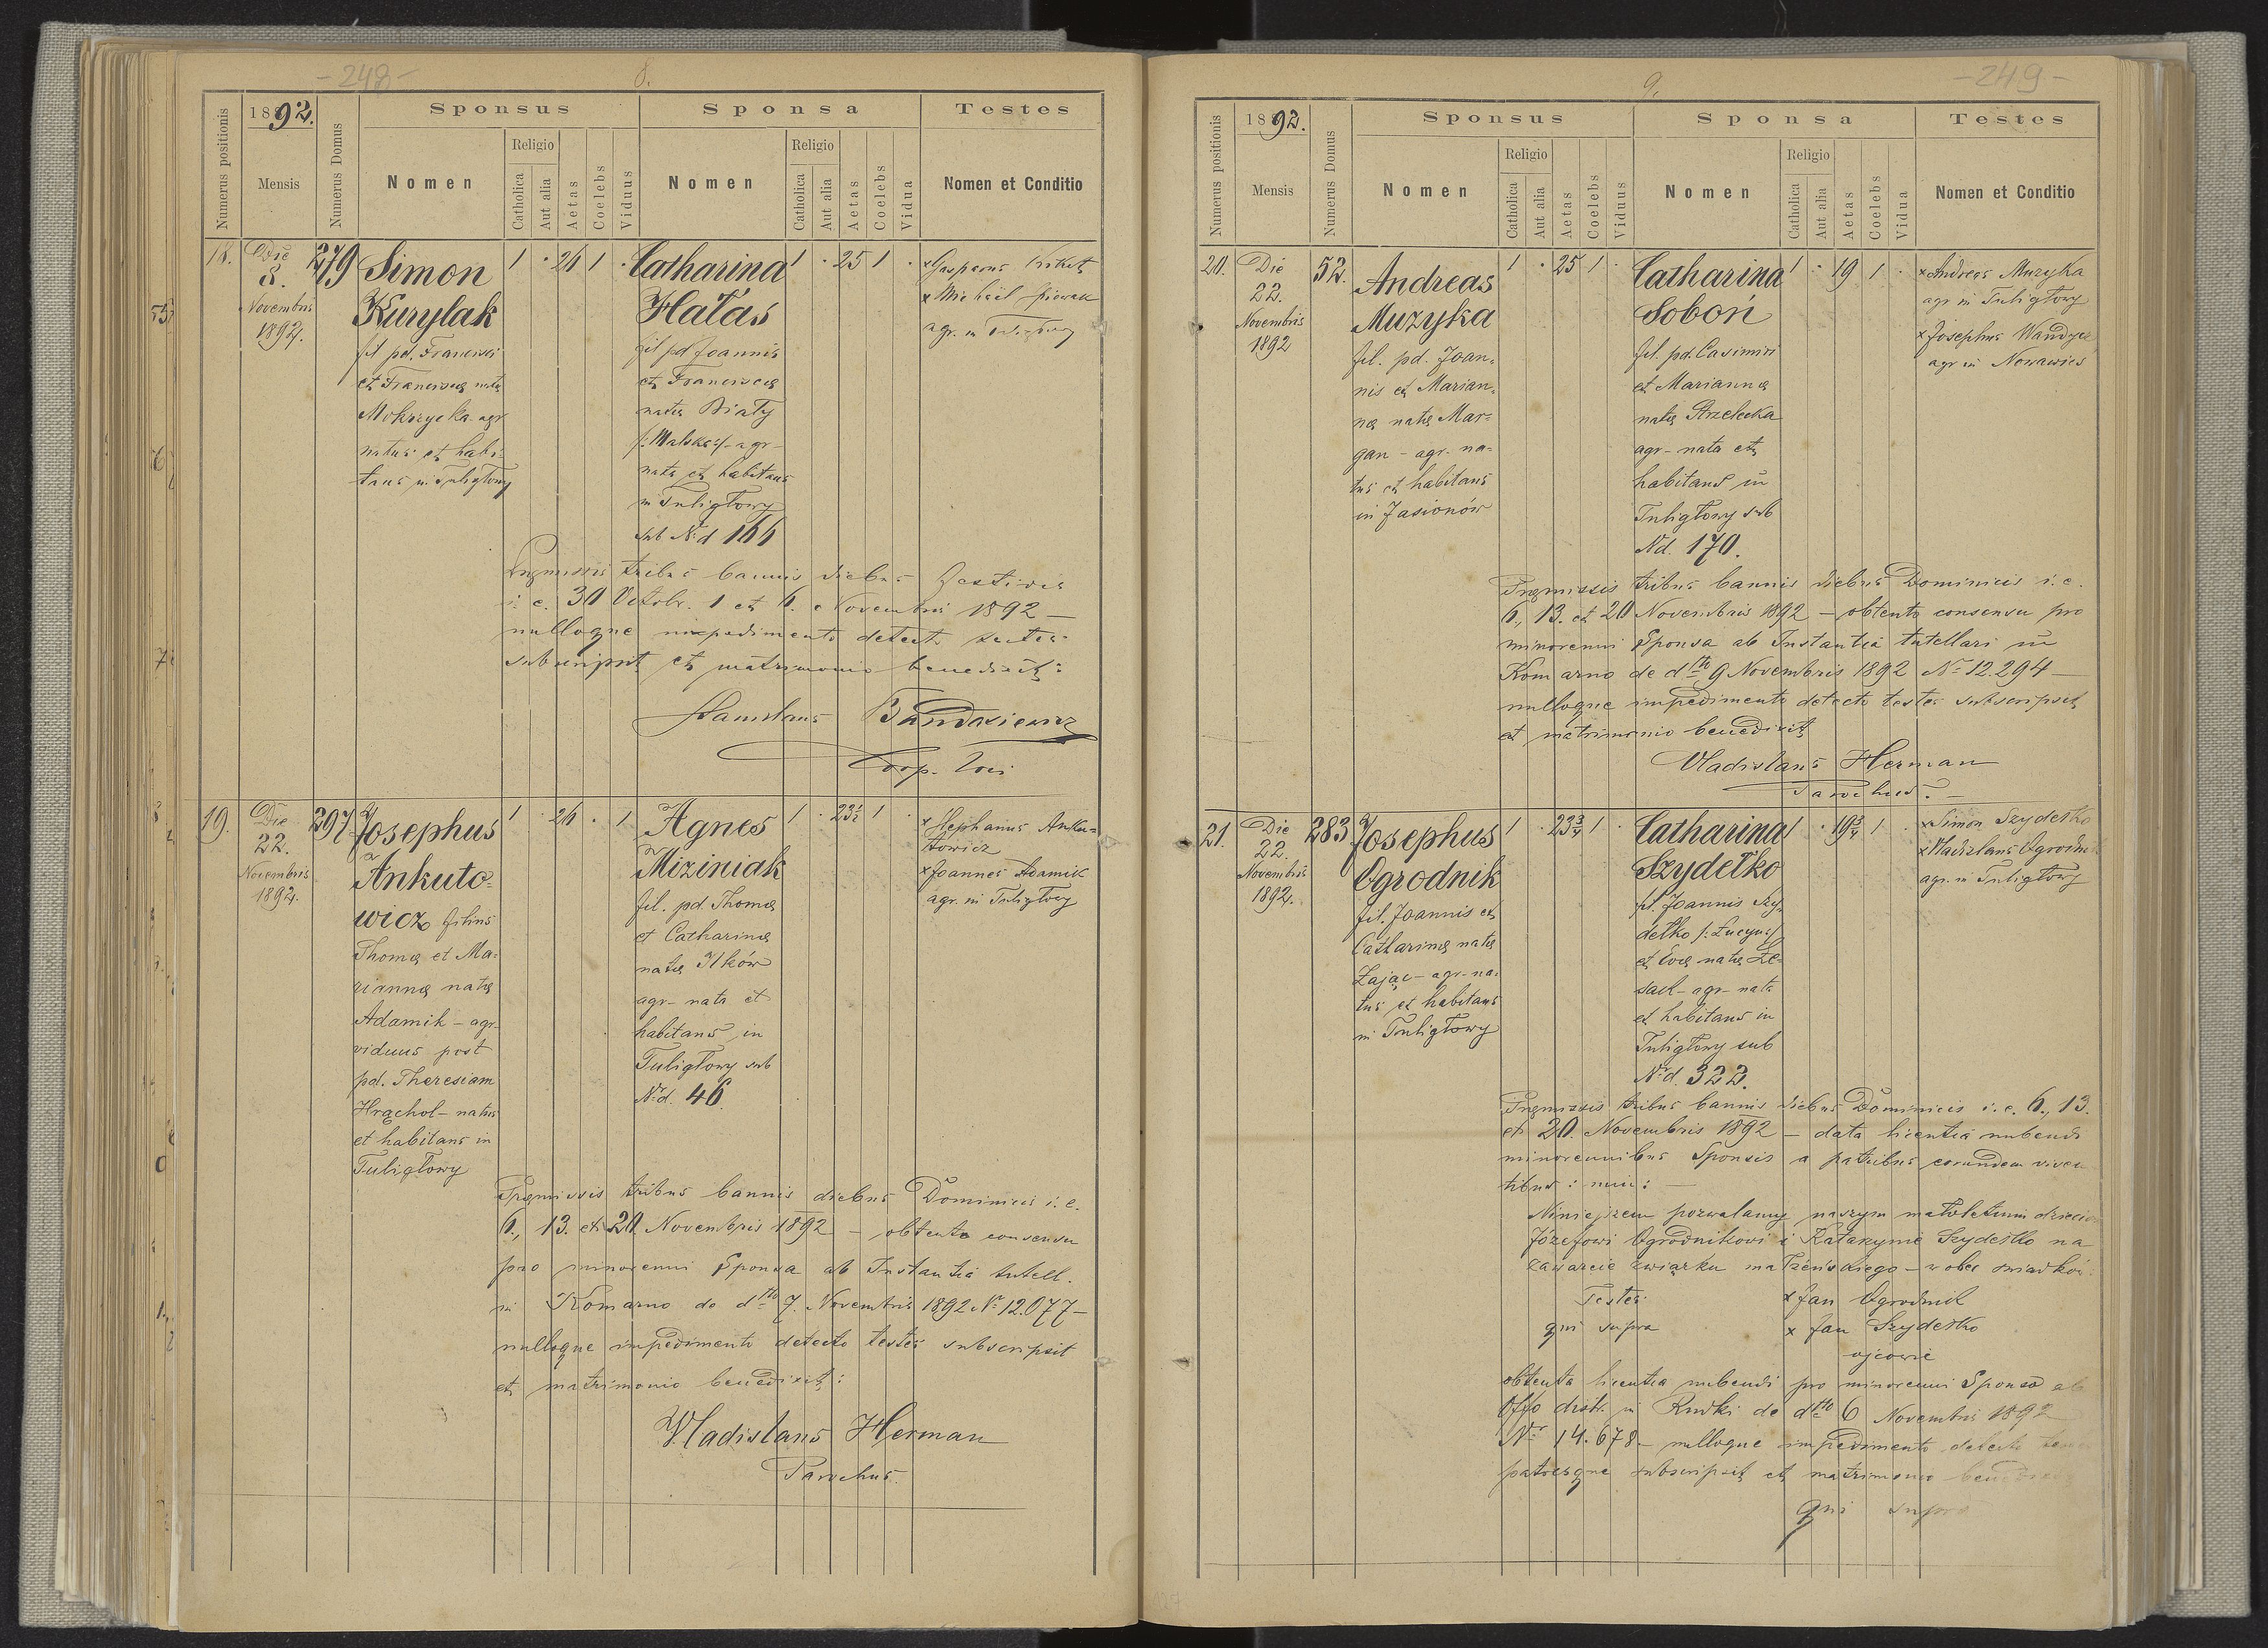 - 248 -
8.
Numerus positionis
1892.
Mensis
Numerus Domus
Sponsus
Nomen
Religio
Catholica
Aut alia
Aetas
Coelebs
Viduus
Sponsa
Nomen
Religio
Catholica
Aut alia
Aetas
Coelebs
Vidua
Testes
Nomen et Conditio
18.
Die
8.
Novembris
1892.
279
Simon
Kurylak
fil pd. Francisci
et Franciscę natę
Mokrzycka agr
natus et habi-
tans in Tuligłowy
1 . 26 1 .
Catharina
Hałas
fil pd Joannis
et Franciscę
natę Biały
/:Malska:/ - agr -
nata et habitans
in Tuligłowy
sub Nd 166
1 . 25 1 .
x Michael
agr. in Tuligłowy
Pręmissis tribus bannis diebus
i. e. 30 Octobr. 1 et 6. Novembris 1892 —
nulloque impedimento detecto testes
subscripsit et matrimonio benedixit:
Coop. loci
19.
Die
22.
Novembris
1892.
297
Josephus
Ankuto-
wicz filius
Thomę et Ma-
riannę natę
Adamik - agr-
viduus post
pd. Theresiam
Hrąchol - natus
et habitans in
Tuligłowy
1 . 26 . 1
Agnes
Miziniak
fil. pd. Thomę
et Catharinę
natę Ilków
agr - nata et
habitans in
Tuligłowy sub
Nrd. 46.
1 . 23½ 1 .
x Stephanus Anku-
towicz
x Joannes Adamik
agr. in Tuligłowy
Pręmissis tribus bannis diebus Dominicis i. e.
6., 13. et 20 Novembris 1892 — obtento consensu
pro minorenni Sponsa ab Instantia tutell.
in Komarno de dto 7. Novembris 1892 No 12.077 —
nulloque impedimento detecto testes subscripsit
et matrimonio benedixit:
Vladislaus Herman
Parochus.
- 249 -
9.
Numerus positionis
1892.
Mensis
Numerus Domus
Sponsus
Nomen
Religio
Catholica
Aut alia
Aetas
Coelebs
Viduus
Sponsa
Nomen
Religio
Catholica
Aut alia
Aetas
Coelebs
Vidua
Testes
Nomen et Conditio
20.
Die
22.
Novembris
1892
52.
Andreas
Muzyka
fil. pd. Joan-
nis et Marian-
nę natę Mar-
gan - agr. na-
tus et habitans
in Jasionów
1 . 25 1 .
Catharina
Soboń
fil. pd. Casimiri
et Mariannę
natę Strzelecka
agr - nata et
habitans in
Tuligłowy sub
Nd. 170.
1 . 19 1 .
x Andreas Muzyka
agr in Tuligłowy
x Josephus
agr in Nowawieś
Pręmissis tribus bannis diebus Dominicis i. e.
6., 13. et 20 Novembris 1892 — obtento consensu pro
minorenni Sponsa ab Instantia tutellari in
Komarno de dto 9 Novembris 1892 No 12.294 —
nulloque impedimento detecto testes subscripsit
et matrimonio benedixit
Vladislaus Herman
Parochus.
21.
Die
22.
Novembris
1892.
283
Josephus
Ogrodnik
fil. Joannis et
Catharinę natę
Zając - agr. na-
tus et habitans
in Tuligłowy
1 . 23¾ 1 .
Catharina
Szydełko
fil. Joannis Szy-
dełko /:Łucyn:/
et Evę natę Że-
sach - agr - nata
et habitans in
Tuligłowy sub
Nrd. 322.
1 . 19¾ 1 .
x Simon Szydełko
x Vladislaus Ogrodnik
agr. in Tuligłowy
Pręmissis tribus bannis diebus Dominicis i. e. 6., 13.
et 20. Novembris 1892 — data licentia nubendi
minorennibus Sponsis a patribus eorundem viven
tibus :
Niniejszem pozwalamy naszym małoletnim
Józefowi Ogrodnikowi i Katarzynie Szydełko na
zawarcie związku małżeńskiego — wobec świadków:
Testes: x Jan Ogrodnik
qui supra x Jan Szydełko
ojcowie
obtenta licentia nubendi pro minorenni Sponso ab
Offo distr. in Rudki de dto 6 Novembris 1892
Nr 14.678 — nulloque impedimento detecto
patresque subscripsit et matrimonio
qui supra